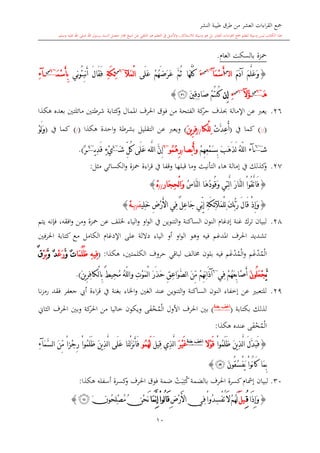 جمع القراءات العشر من طرق طيبة النشر
حمزة بالسكت العام.
﴿ وَعَلَّمَ ءَادَمَ ٱلۡأَسۡمَآءَ كُلَّهَا ثُمَّ عَرَضَهُمۡ عَلَى ٱلۡمَلَٰٓئِكَةِ فَقَالَ أَنۢبِـُٔونِي بِأَسۡمَآءِ
هَٰٓؤُلَآءِ إِن كُنتُمۡ صَٰدِقِينَ ﴾
٢٦. يعبر عن الإمالة بحذف حركة الفتحة من فوق الحرف الممال وكتابة شرطتين مائلتين بعده هكذا
كما في (أُعِدَّتۡ لِلۡكَٰفِرِينَ) ويعبر عن التقليل بشرطة واحدة هكذا كما في ﴿ وَلَوۡ
شَآءَ ٱللَّهُ لَذَهَبَ بِسَمۡعِهِمۡ وَأَبۡصَٰرِهِمۡ إِنَّ ٱللَّهَ عَلَىٰ كُلِّ شَيۡءٖ قَدِيرٞ ﴾.
٢٧. وكذلك في إمالة هاء التأنيث وما قبلها وقفا في قراءة حمزة والكسائي مثل:
﴿ فَٱتَّقُواْ ٱلنَّارَ ٱلَّتِي وَقُودُهَا ٱلنَّاسُ وَٱلۡحِجَارَةُ ﴾
﴿ وَإِذۡ قَالَ رَبُّكَ لِلۡمَلَٰٓئِكَةِ إِنِّي جَاعِلٞ فِي ٱلۡأَرۡضِ خَلِيفَةٗ ﴾
٢٨. لبيان ترك غنة إدغام النون الساكنة والتنوين في الواو والياء لخلف عن حمزة ومن وافقه، فإنه يتم
تشديد الحرف المدغم فيه وهو الواو أو الياء دلالة على الإدغام الكامل مع كتابة الحرفين
المدغم والمدغم فيه بلون مخالف لباقي حروف الكلمتين، هكذا: ﴿ فِيهِ ظُلُمَٰتٞ وَرَعۡدٞ وَبَرۡقٞ
يَجۡعَلُونَ أَصَٰبِعَهُمۡ فِيٓ ءَاذَانِهِم مِّنَ ٱلصَّوَٰعِقِ حَذَرَ ٱلۡمَوۡتِ وَٱللَّهُ مُحِيطُۢ بِٱلۡكَٰفِرِينَ ﴾.
٢٩. للتعبير عن إخفاء النون الساكنة والتنوين عند الغين والخاء بغنة في قراءة أبي جعفر فقد رمزنا
لذلك بكتابة بين الحرف الأول المُخْفَى ويكون خاليا من الحركة وبين الحرف الثاني
المُخْفَى عنده هكذا:
﴿ فَبَدَّلَ ٱلَّذِينَ ظَلَمُواْ قَوۡلًا غَيۡرَ ٱلَّذِي قِيلَ لَهُمۡ فَأَنزَلۡنَا عَلَى ٱلَّذِينَ ظَلَمُواْ رِجۡزٗا مِّنَ ٱلسَّمَآءِ
بِمَا كَانُواْ يَفۡسُقُونَ ﴾
٣٠. لبيان إشمام كسرة الحرف بالضمة كُتِبَتْ ضمة فوق الحرف وكسرة أسفله هكذا:
﴿ وَإِذَا قِيلَ لَهُمۡ لَا تُفۡسِدُواْ فِي ٱلۡأَرۡضِ قَالُوٓاْ إِنَّمَا نَحۡنُ مُصۡلِحُونَ ﴾
١٠